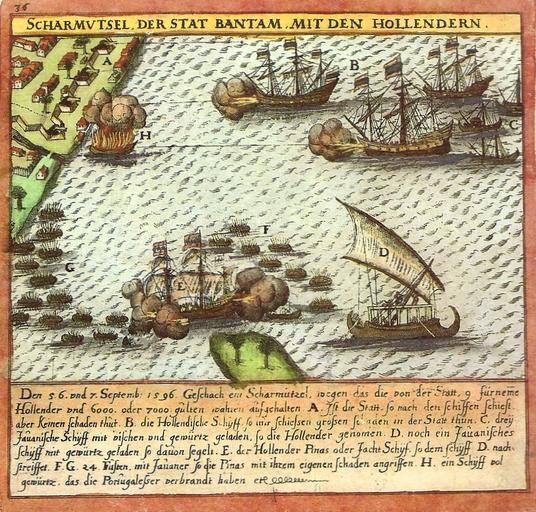 36
SCHARMVTSEL, DER STAT BANTAM, MIT DEN HOLLENDERN.
A
B
H
C
F
D
G
E
Den 5 6. vnd 7. Septemb: 1596. Geschach ein Scharmutzel, wegen das die von der Statt, 9 fürneme
Hollender vnd 6000. oder 7000. gülten wahren aufgehalten A. Jst die Statt, so nach den schiffen schiest,
aber Keinen schaden thüt. B. die Hollendische Schiff, so mit schiessen großen schaden in der Statt thün. C. drey
Jaüanische Schiff mit vischen vnd gewürtz geladen, so die Hollender genomen. D. noch ein Jaüanisches
schiff mit gewürtz geladen so dauon segelt. E. der Hollender Pinas oder Jacht Schif, so dem schiff D. nach
streiffet. F. G. 24. Füsten, mit Jaüaner so die Pinas mit ihrem eigenen schaden angriffen. H. ein Schiff vol
gewürtz, das die Portugalesser verbrandt haben